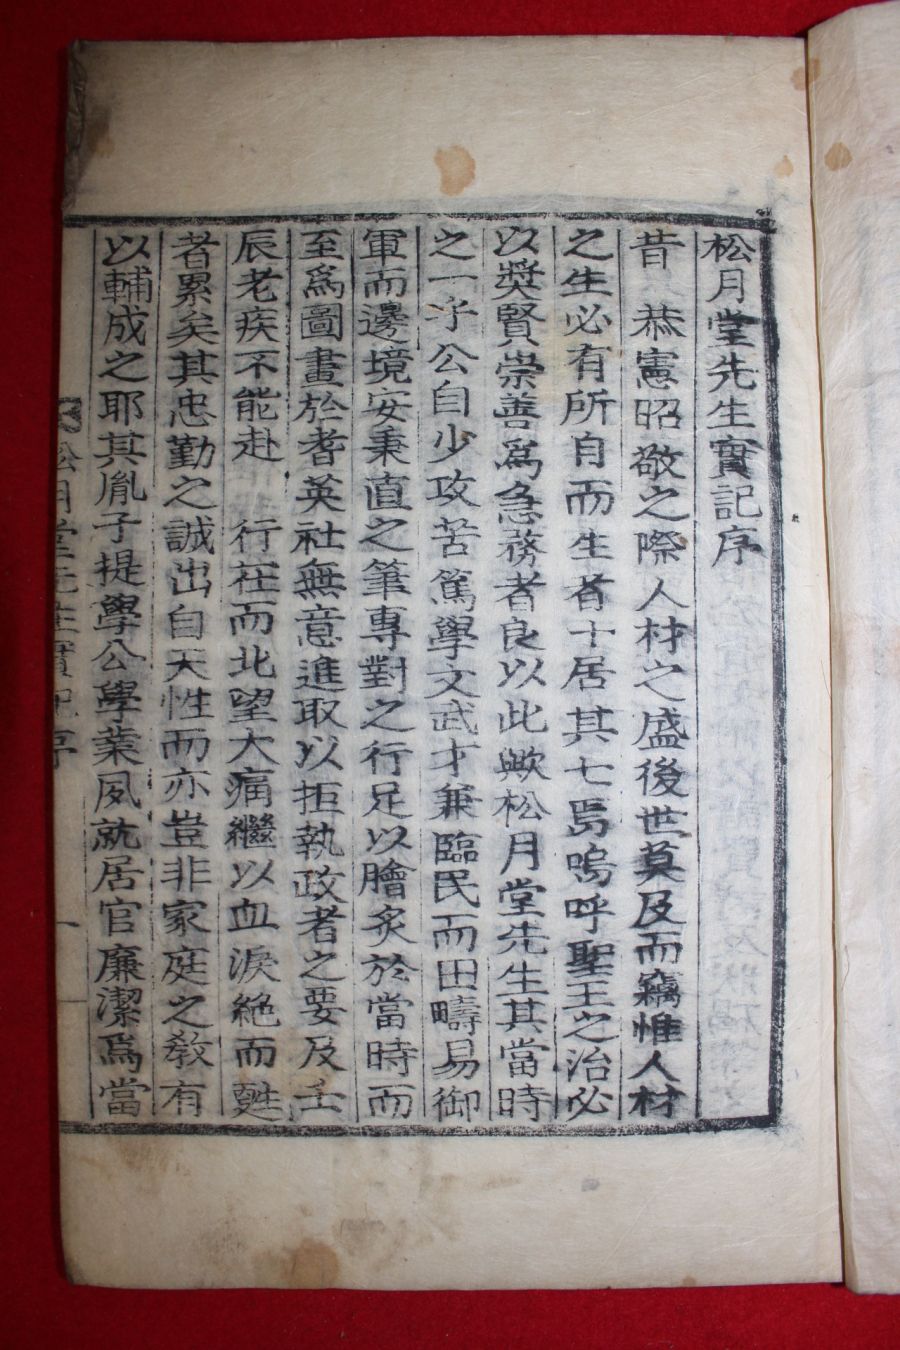 松月堂先生實記序
昔 恭憲昭敬之際人材之盛後世莫及而竊惟人材
之生必有所自而生者十居其七焉嗚呼聖王之治必
以奬賢崇善爲急務者良以此歟松月堂先生其當時
之一乎公自少攻苦篤學文武才兼臨民而田疇易御
軍而邊境安秉直之筆專對之行足以膾炙於當時而
至爲圖畫於耆英社無意進取以拒執政者之要及壬
辰老疾不能赴 行在而北望大痛繼以血淚絶而甦
者累矣其忠勤之誠出自天性而亦豈非家庭之敎有
以輔成之耶其胤子提學公學業夙就居官廉潔爲當
松月堂先生實記序 一